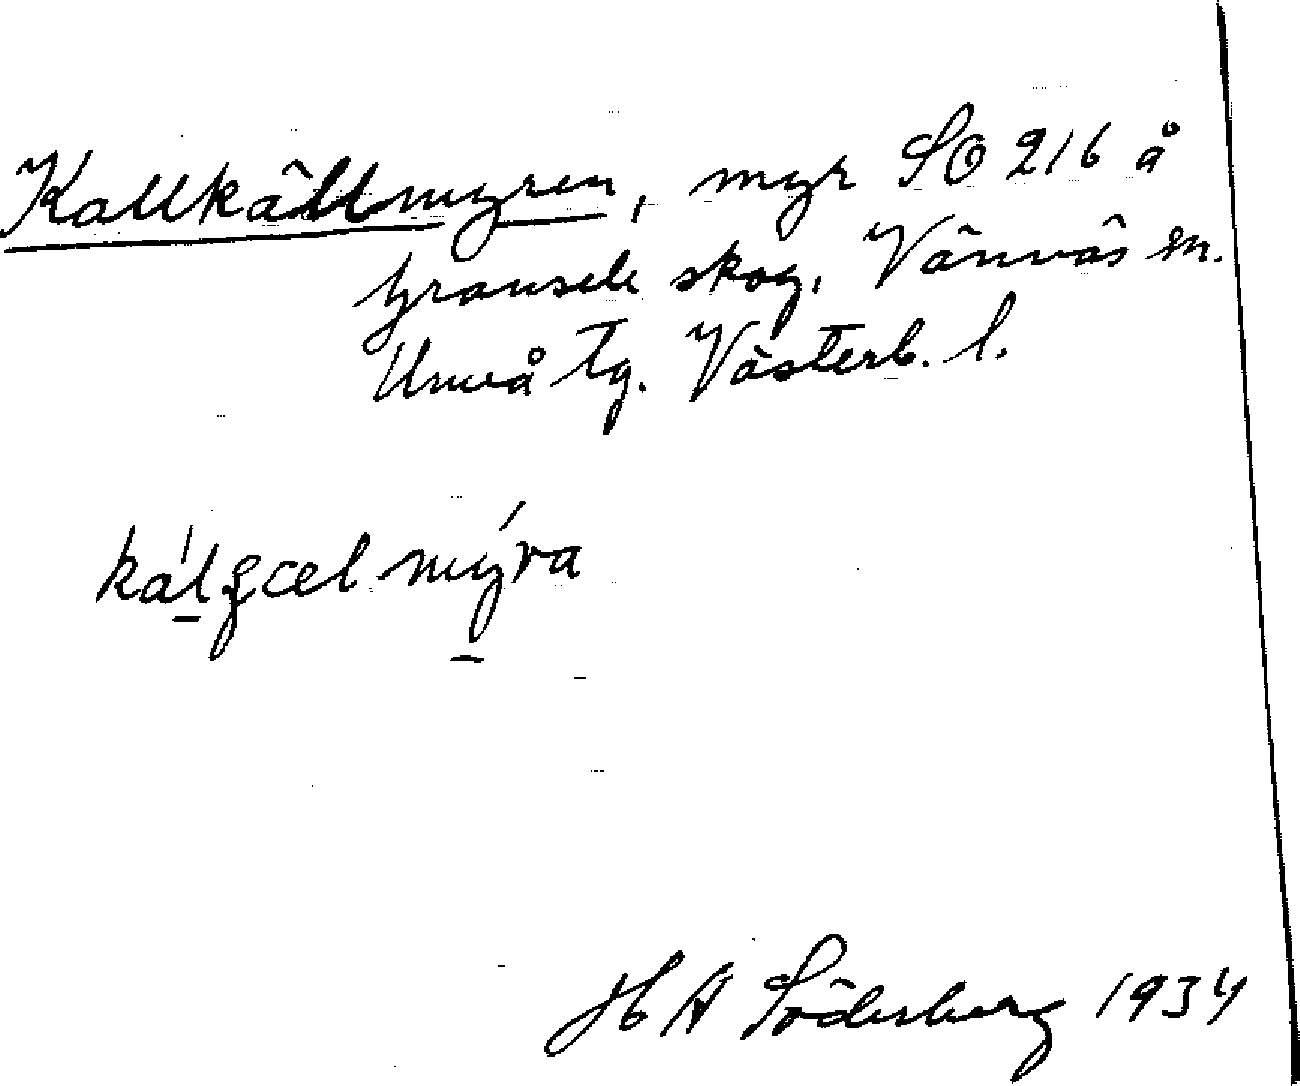 Kallkällmyren, myr SO 216 å
Gransele skog, Vännäs sn.
Umeå tg. Västerb. l.
kálꞔæl mýra
H A Söderberg 1934